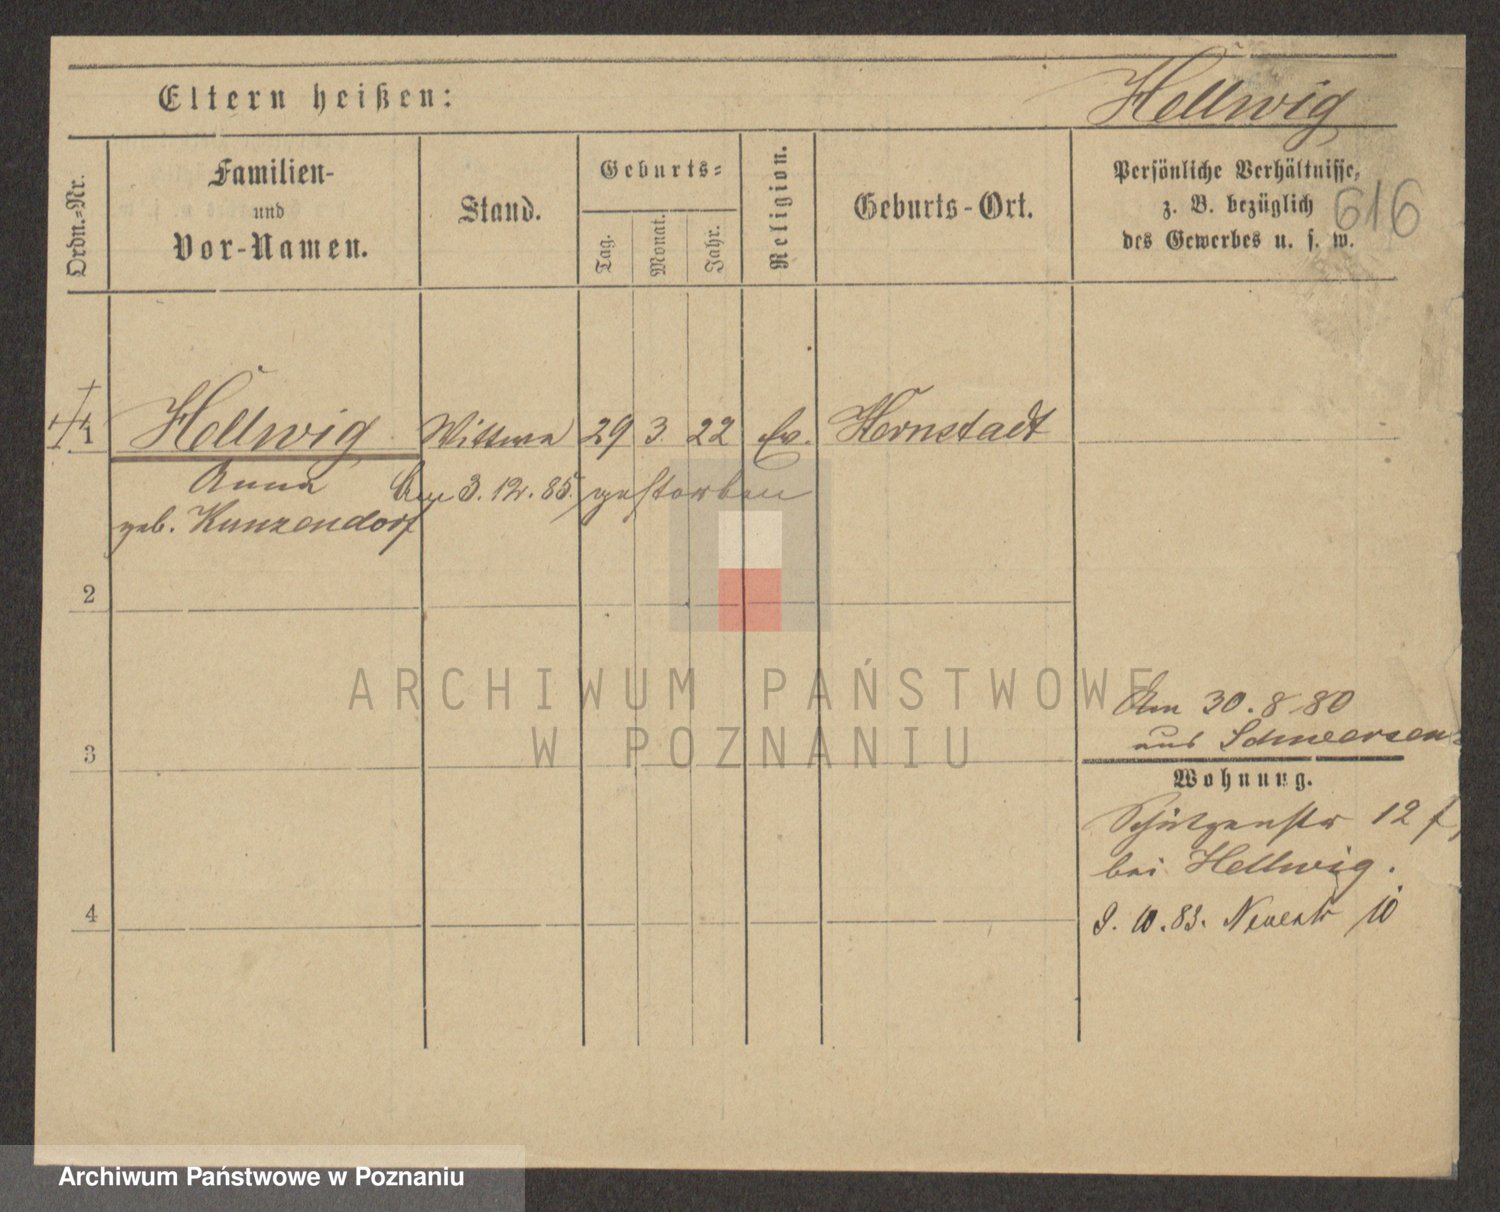 Eltern heißen:
Hellwig
Ordn.=Nr.
Familien-
und
Vor-Namen.
Stand.
Geburts=
Tag.
Monat.
Jahr.
Religion.
Geburts-Ort.
Persönliche Verhältnisse,
z. B. bezüglich
des Gewerbes u. s. w.
616
1 Hellwig Wittwe 29 3. 22 Ev. Hernstadt
Anna Am 3. 12. 85. gestorben
geb. Kunzendorf
2
ARCHIWUM PAŃSTWOWE
W POZNANIU
Am 30. 8 80
aus Schwersenz
3
Wohnung.
Schützenstr 12 f,
bei Hellwig.
4
9. 10. 83. Neuestr 10
Archiwum Państwowe w Poznaniu